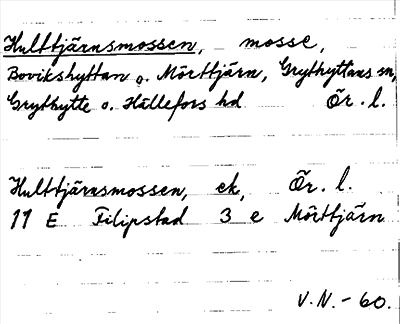 Hulttjärnsmossen, mosse,
Bovikshyttan o. Mörttjärn, Grythyttans sn,
Grythytte o. Hällefors hd Ör. l.
Hulttjärnsmossen, ek, Ör. l.
11 E Filipstad 3 e Mörttjärn
V.N. - 60.